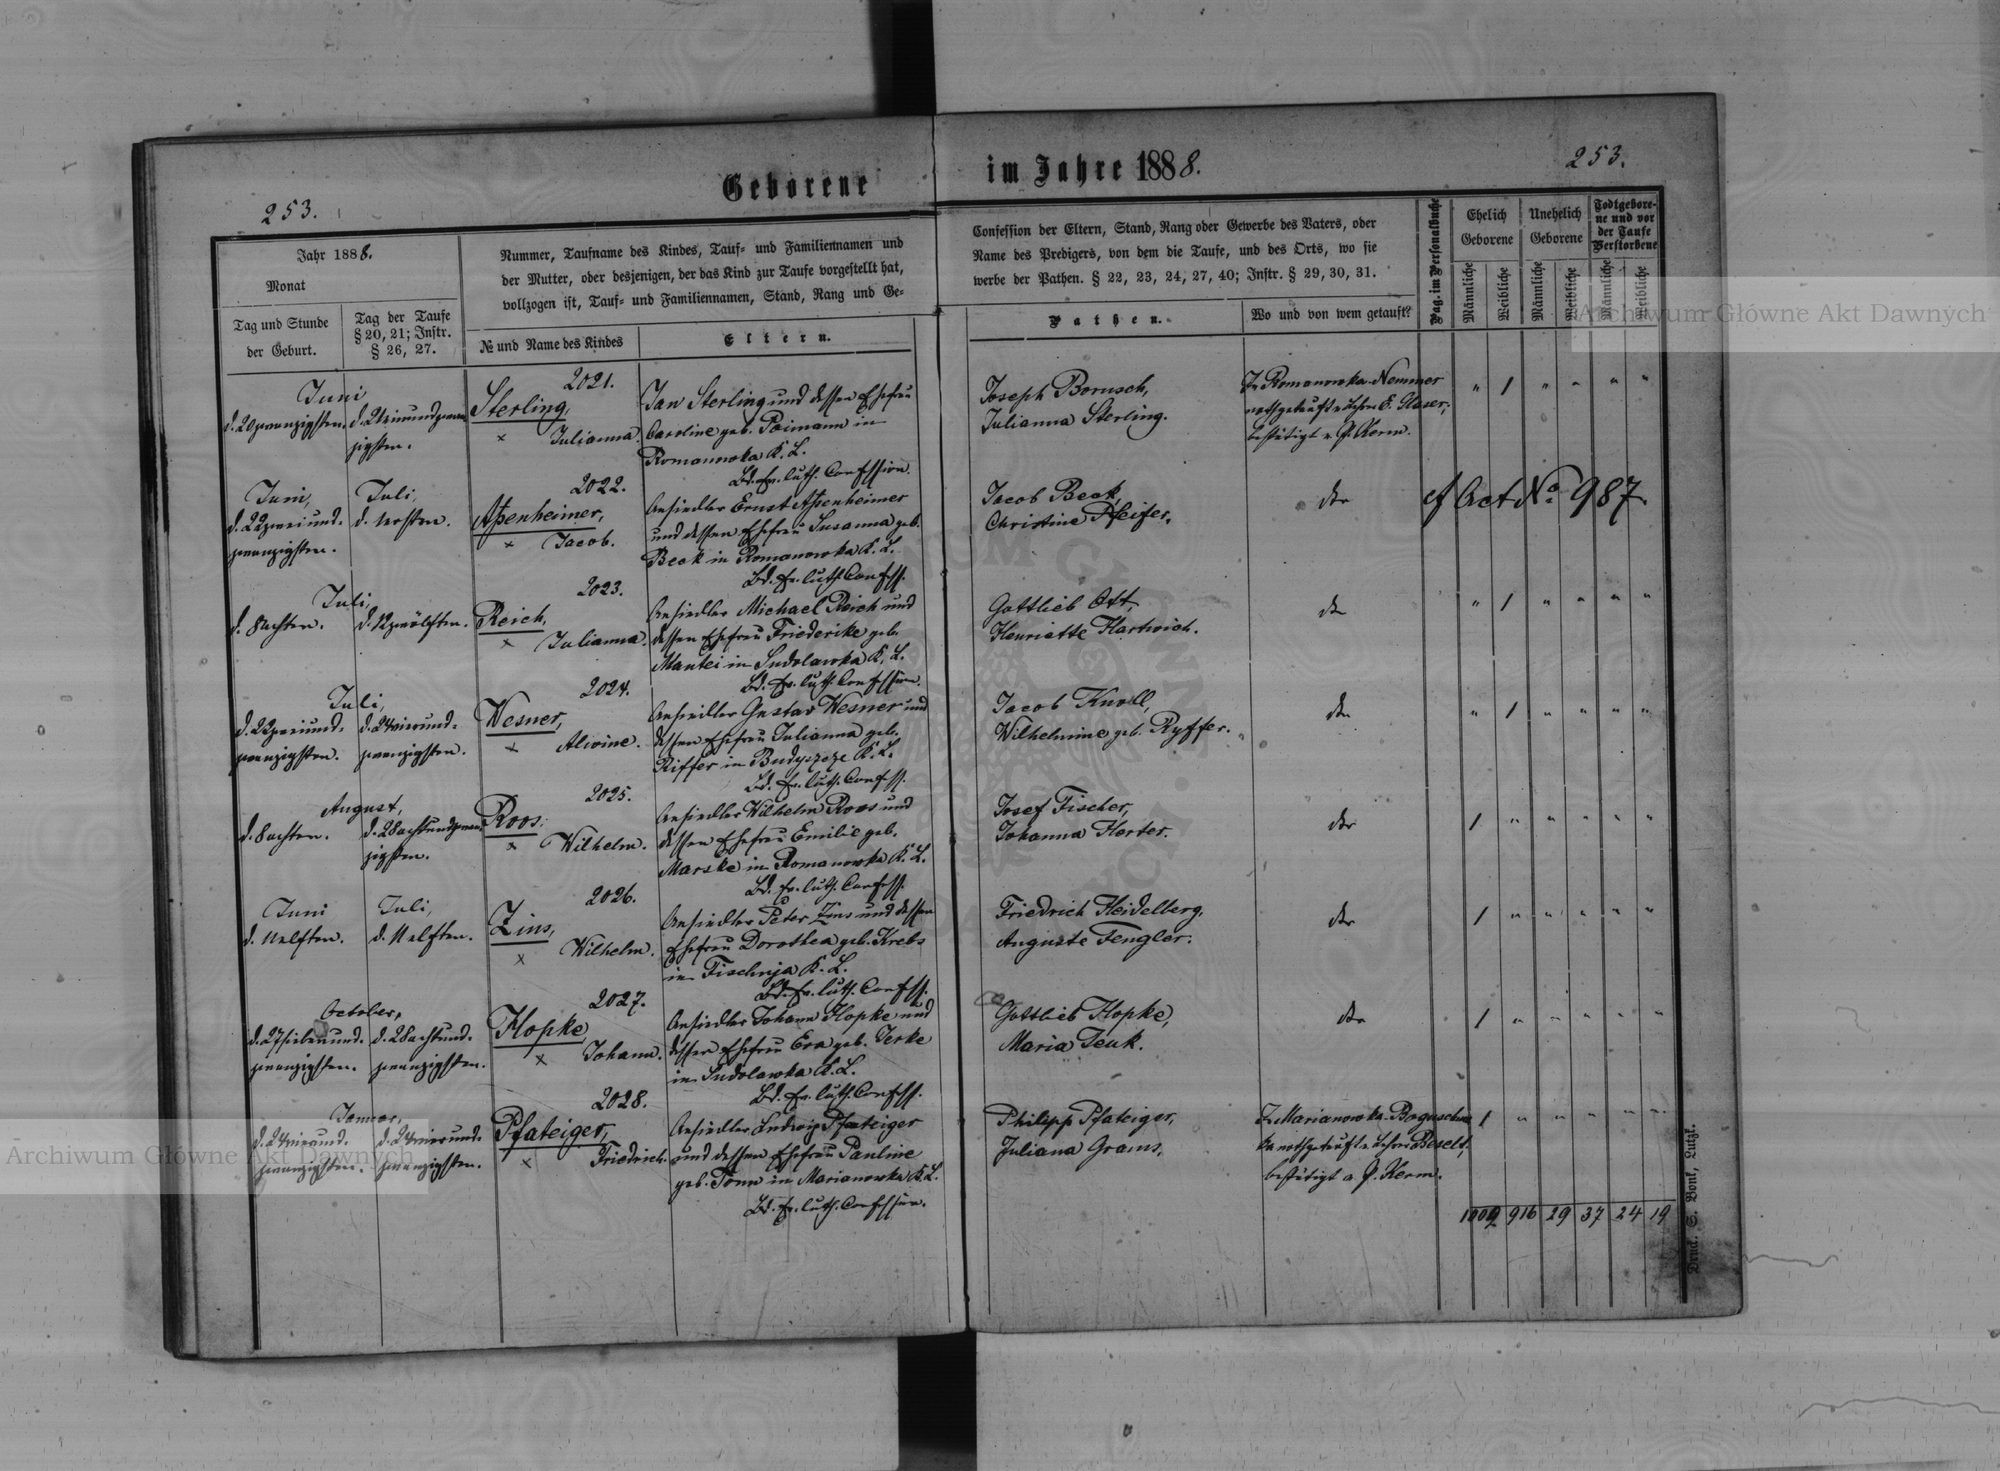 Geborene
im Jahre 1888.
253.
253.
Jahr 1888.
Monat
Tag und Stunde
der Geburt.
Tag der Taufe
§ 20, 21; Instr.
§ 26, 27.
Nummer, Taufname des Kindes, Tauf- und Familiennamen und
der Mutter, oder desjenigen, der das Kind zur Taufe vorgestellt hat,
vollzogen ist, Tauf- und Familiennamen, Stand, Rang und Ge-
№ und Name des Kindes
Eltern.
Confession der Eltern, Stand, Rang oder Gewerbe des Vaters, oder
Name des Predigers, von dem die Taufe, und des Orts, wo sie
werbe der Pathen. § 22, 23, 24, 27, 40; Instr. § 29, 30, 31.
Pathen.
Wo und von wem getauft?
Pag. im Personalbuche
Ehelich
Geborene
Unehelich
Geborene
Todtgebore-
ne und vor
der Taufe
Verstorbene
Männliche
Weibliche
Männliche
Weibliche
Männliche
Weibliche
Juni
d. 20 zwanzigsten.
zigsten.
2021.
Sterling,
× Julianna.
Jan Sterling und dessen Ehefrau
Caroline geb. Paimann in
Romanowka K. L.
Bd. Ev. luth. Confession.
Joseph Borusch,
Julianna Sterling.
In Romanowka-Nemmer
nothgetauft v. Lehrer E. Glaser;
bestätigt v. P. Kerm.
" / " " " "
Juni,
d. 22 zweiund-
zwanzigsten.
Juli,
d. 1 ersten.
2022.
Aßenheimer,
× Jacob.
Ansiedler Ernst Aßenheimer
und dessen Ehefrau Susanna geb.
Beck in Romanowka K. L.
Bd. Ev. luth. Confess.
Jacob Beck,
Christine Pfeifer.
dto
cf Act No 987.
Juli,
d. 8 achten.
d. 12 zwölften.
2023.
Reich,
× Julianna.
Ansiedler Michael Reich und
dessen Ehefrau Friederike geb.
Mantei in Sudolawka K. L.
Bd. Ev. luth. Confession.
Gottlieb Ott,
Henriette Hartwich.
dto
" / " " " "
Juli,
d. 22 zweiund-
zwanzigsten.
d. 24 vierund-
zwanzigsten.
2024.
Wesner,
× Alwine.
Ansiedler Gustav Wesner und
dessen Ehefrau Julianna geb.
Riffer in Budyszcze K. L.
Bd. Ev. luth. Confess.
Jacob Knoll,
Wilhelmine geb. Ryffer.
dto
" / " " " "
August,
d. 8 achten.
d. 28 achtundzwan-
zigsten.
2025.
Roos,
× Wilhelm.
Ansiedler Wilhelm Roos und
dessen Ehefrau Emilie geb.
Marske in Romanowka K. L.
Bd. Ev. luth. Confess.
Josef Fischer,
Johanna Herter.
dto
/ " " " " "
Juni
d. 11 elften.
Juli,
d. 11 elften.
2026.
Zins,
× Wilhelm.
Ansiedler Peter Zins und dessen
Ehefrau Dorothea geb. Krebs
in Tischnja K. L.
Bd. Ev. luth. Confess.
Friedrich Heidelberg,
Auguste Fengler.
dto
/ " " " " "
October,
d. 27 siebenund-
zwanzigsten.
d. 28 achtund-
zwanzigsten.
2027.
Hopke
× Johann.
Ansiedler Johann Hopke und
dessen Ehefrau Eva geb. Jerke
in Sudolawka K. L.
Bd. Ev. luth. Confess.
Gottlieb Hopke,
Maria Jeuk.
dto
/ " " " " "
Januar,
d. 24 vierund-
zwanzigsten.
d. 24 vierund-
zwanzigsten.
2028.
Pfateiger,
× Friedrich.
Ansiedler Ludwig Pfateiger
und dessen Ehefrau Pauline
geb. Tonn in Marianowka K. L.
Bd. Ev. luth. Confession.
Philipp Pfateiger,
Juliana Grams.
In Marianowka-Boguschow
ka nothgetauft v. Lehrer Beselt;
bestätigt a. P. Kerm.
/ " " " " "
1009 916 29 37 24 19
Druck. S. Bonk, Lutzk.
Archiwum Główne Akt Dawnych
Archiwum Główne Akt Dawnych